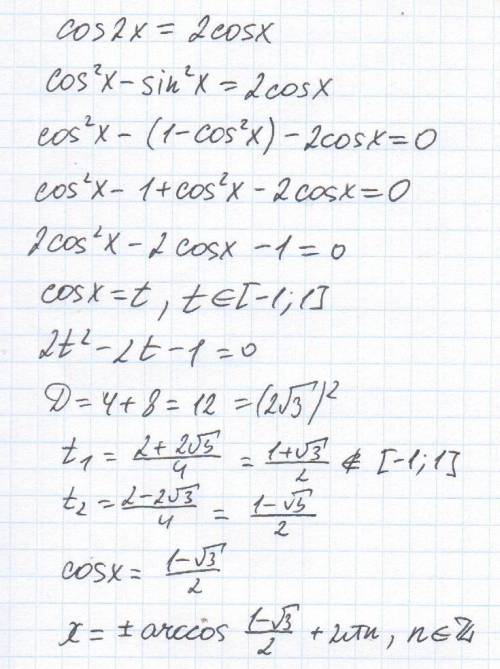 cos2x = 2cosx
cos²x - sin²x = 2cosx
cos²x - (1-cos²x) - 2cosx = 0
cos²x - 1 + cos²x - 2cosx = 0
2cos²x - 2cosx - 1 = 0
cosx = t, t ∈ [-1; 1]
2t² - 2t - 1 = 0
D = 4 + 8 = 12 = (2√3)²
t₁ = (2+2√5)/4 = (1+√3)/2 ∉ [-1; 1]
t₂ = (2-2√3)/4 = (1-√5)/2
cosx = (1-√3)/2
x = ± arccos (1-√3)/2 + 2πn, n ∈ ℤ